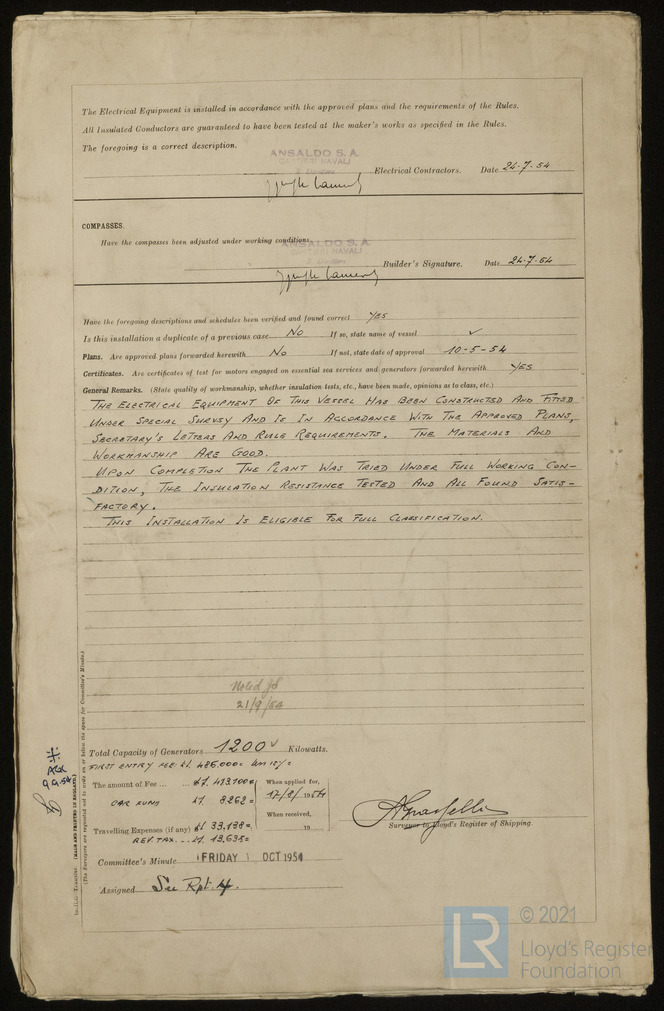 The Electrical Equipment is installed in accordance with the approved plans and the requirements of the Rules.
All Insulated Conductors are guaranteed to have been tested at the maker's works as specified in the Rules.
The foregoing is a correct description.
ANSALDO S. A.
CANTIERI NAVALI
Electrical Contractors. Date 24-7-54
COMPASSES.
Have the compasses been adjusted under working conditions
ANSALDO S. A.
CANTIERI NAVALI
Builder's Signature. Date 24-7-54
Have the foregoing descriptions and schedules been verified and found correct YES
Is this installation a duplicate of a previous case No If so, state name of vessel ✓
Plans. Are approved plans forwarded herewith No If not, state date of approval 10-5-54
Certificates. Are certificates of test for motors engaged on essential sea services and generators forwarded herewith YES
General Remarks. (State quality of workmanship, whether insulation tests, etc., have been made, opinions as to class, etc.)
THE ELECTRICAL EQUIPMENT OF THIS VESSEL HAS BEEN CONSTRUCTED AND FITTED
UNDER SPECIAL SURVEY AND IS IN ACCORDANCE WITH THE APPROVED PLANS,
SECRETARY'S LETTERS AND RULE REQUIREMENTS. THE MATERIALS AND
WORKMANSHIP ARE GOOD.
UPON COMPLETION THE PLANT WAS TRIED UNDER FULL WORKING CON-
DITION, THE INSULATION RESISTANCE TESTED AND ALL FOUND SATIS-
FACTORY.
THIS INSTALLATION IS ELIGIBLE FOR FULL CLASSIFICATION.
Noted
21/9/54
Total Capacity of Generators 1200 ✓ Kilowatts.
FIRST ENTRY FEE
The amount of Fee ... ... When applied for,
17/8/1954
8262=
When received,
Travelling Expenses (if any) 33.138= 19
REV. TAX. ... 13.635=
Surveyor to Lloyd's Register of Shipping.
Committee's Minute FRIDAY 1 OCT 1954
Assigned See Rpt. 4.
(MADE AND PRINTED IN ENGLAND.)
(The Surveyors are requested not to write on or below the space for Committee's Minute.)
9.9.54
© 2021
LR
Lloyd's Register
Foundation